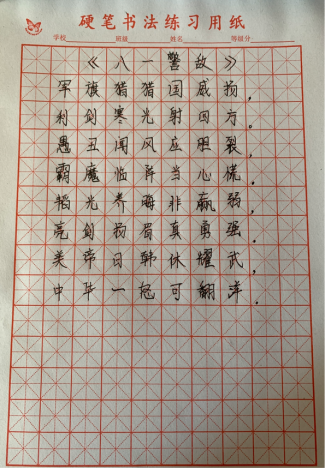 硬笔书法练习用纸
学校 班级 姓名 得图分
《八一警敌》
军旗猎猎国威扬，
利剑寒光射四方。
愚丑闻风应胆裂，
霸魔临阵当心慌。
韬光养晦非羸弱，
亮剑扬眉真勇强。
美帝日韩休耀武，
中华一怒可翻洋。